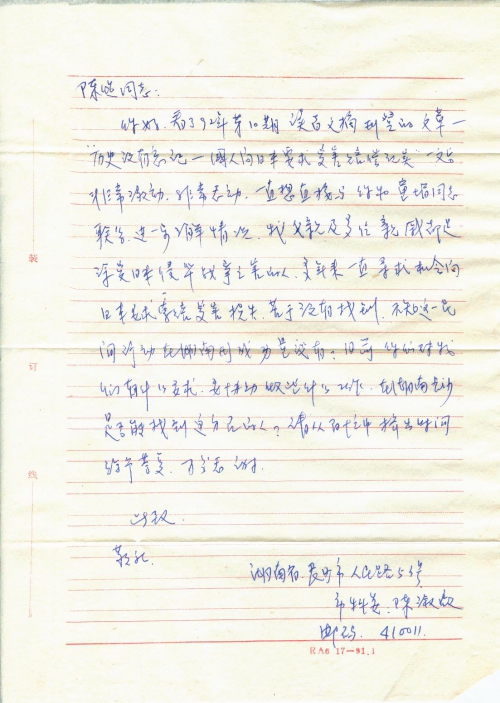 陈健同志:
你好,看了92年第10期 读者文摘刊登的文章—
历史没有忘记—国人向日本要求受害赔偿纪实一文后
非常激动,非常感动,一直想直接与你和童增同志
联系,进一步了解情况,我父亲及多位亲戚都是
深受日本侵华战争之害的人,多年来一直寻求机会向
日本要求索赔受害损失,苦于没有找到,不知这一民
间行动在湖南形成力量没有?目前你们对我
们有什么要求,要求我们做些什么工作,在湖南长沙
是否能找到这方面的人?请从百忙中抽出时间
给予答复,万分感谢.
此致
敬礼
湖南省长沙市人民路53号
陈淑
邮码:410011.
装
订
线
RA6 17—91.1